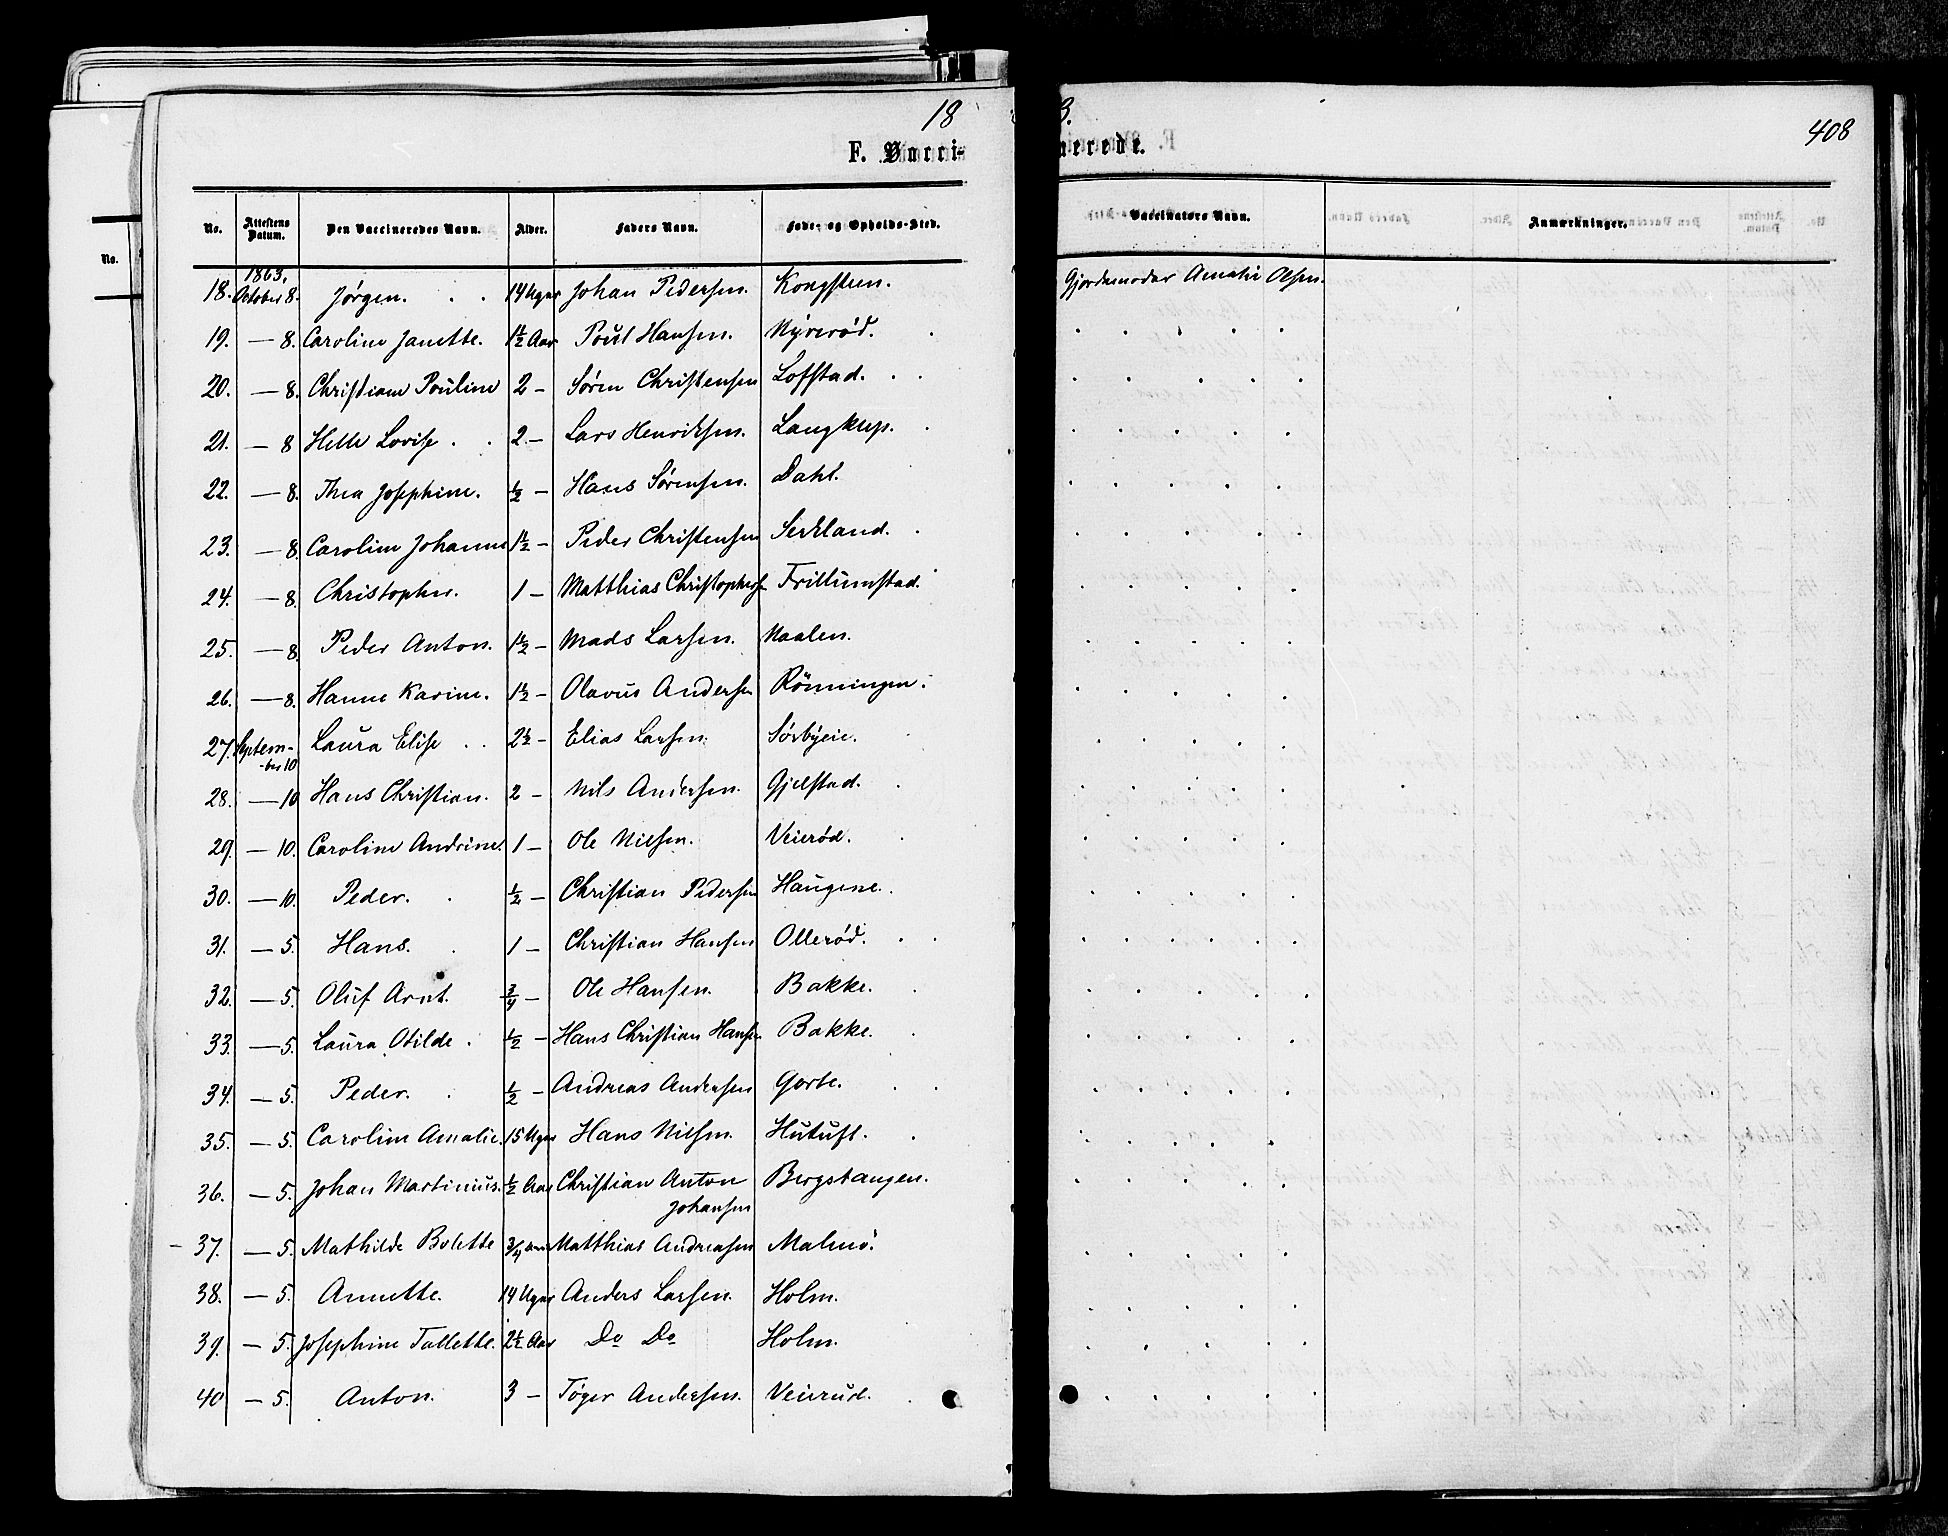 18
3.
408
F. Vacci-
nerede.
No. Attestens Datum. Den Vaccineredes Navn. Alder. Faders Navn. Føde- og Opholds-Sted. Vaccinators Navn. Anmærkninger.
No.
1863,
18. October 8. Jørgen. 14 Uger Johan Pedersen. Kongsteen. Gjordemoder Amalie Olsen.
19. — 8. Caroline Janette. 1½ Aar Poul Hansen. Myrerød.
20. — 8. Christiane Pouline 2 – Søren Christensen Lofstad.
21. — 8 Helle Lovise 2 – Lars Henriksen. Langkup.
22. — 8. Thea Josephine. ½ – Hans Sørensen. Dahl.
23. — 8. Caroline Johanne 1½ – Peder Christensen Serkland.
24. — 8. Christopher. 1 – Matthias Christophers Trillumstad.
25. — 8. Peder Anton. 1½ – Mads Larsen. Naalen.
26. — 8. Hanne Karine. 1½ – Olavus Andersen Rönningen.
27. Septem- Laura Elise 2½ – Elias Larsen. Sørbyeie.
-ber 10
28. — 10 Hans Christian. 2 – Nils Andersen. Gjelstad.
29. — 10. Caroline Andrine. 1 – Ole Nilsen. Veierød.
30. — 10. Peder. ½ – Christian Pedersen Haugene.
31. — 5. Hans. 1 – Christian Hansen Ollerød.
32. — 5. Oluf Arnt. ¾ – Ole Hansen. Bakke.
33. — 5. Laura Otilde. ½ – Hans Christian Hansen Bakke.
34. — 5. Peder. ½ – Andreas Andersen Gorte.
35. — 5. Caroline Amalie. 15 Uger Hans Nilsen. Hutuft.
36. — 5. Johan Martinius. ½ Aar Christian Anton Bergstangen.
Johansen
– 37. — 5. Mathilde Bolette ¾ Aar Matthias Andreasen Malmö.
38. — 5. Annette. 14 Uger Anders Larsen. Holm.
39. — 5. Josephine Tallette. 2½ Aar Do Do Holm.
40 — 5. Anton. 3 – Töger Andersen. Veierud.